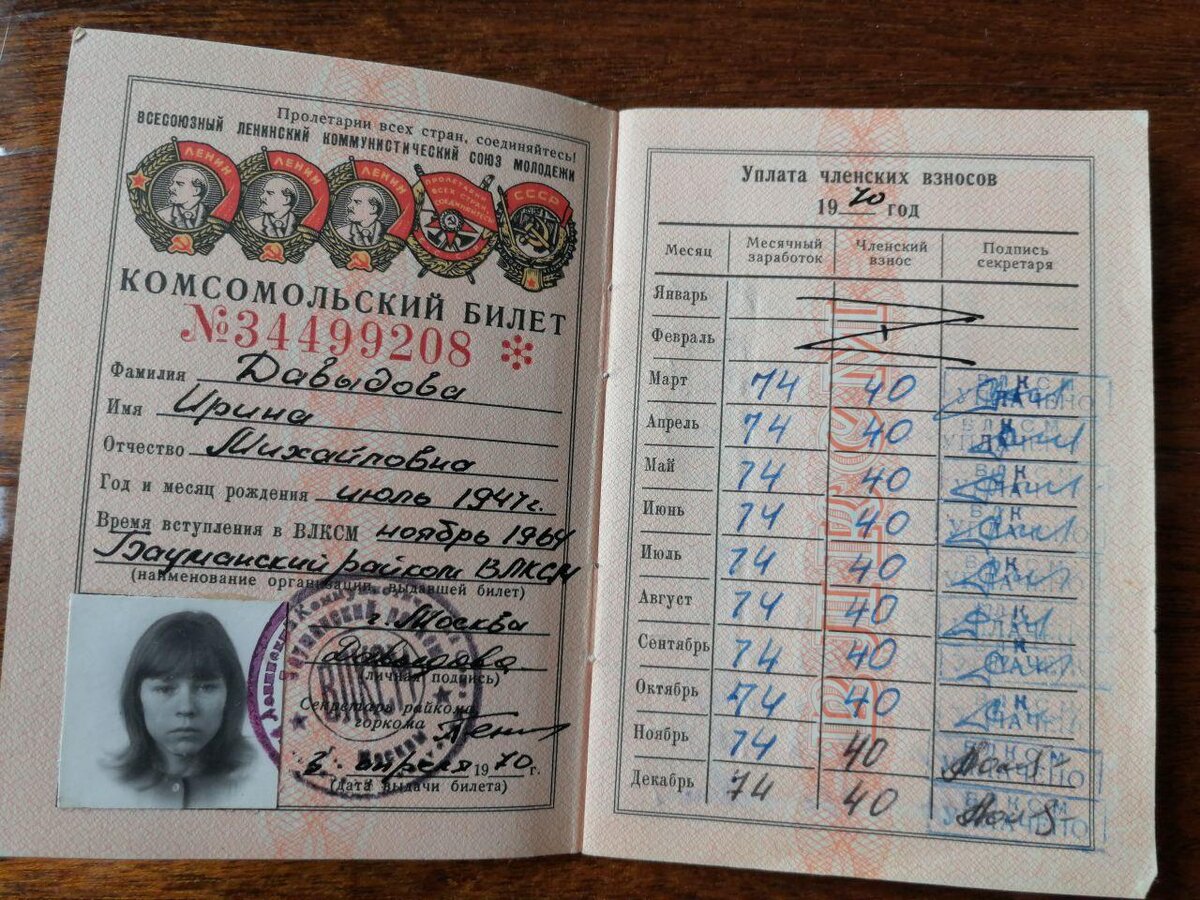 Пролетарии всех стран, соединяйтесь!
ВСЕСОЮЗНЫЙ ЛЕНИНСКИЙ КОММУНИСТИЧЕСКИЙ СОЮЗ МОЛОДЕЖИ
ЛЕНИН ЛЕНИН ЛЕНИН ПРОЛЕТАРИИ ВСЕХ СТРАН СОЕДИНЯЙТЕСЬ СССР
КОМСОМОЛЬСКИЙ БИЛЕТ
№34499208
Фамилия Давыдова
Имя Ирина
Отчество Михайловна
Год и месяц рождения июль 1947г.
Время вступления в ВЛКСМ ноябрь 1964
Бауманский райком ВЛКСМ
(наименование организации, выдавшей билет)
г. Москва
Давыдова
(личная подпись)
Секретарь райкома,
горкома
апреля 1970 г.
(дата выдачи билета)
ВЛКСМ
Уплата членских взносов
1970 год
Месяц Месячный заработок Членский взнос Подпись секретаря
Январь
Февраль
Март 74 40 ВЛКСМ УПЛАЧЕНО
Апрель 74 40 ВЛКСМ
Май 74 40
Июнь 74 40
Июль 74 40
Август 74 40
Сентябрь 74 40
Октябрь 74 40
Ноябрь 74 40 ВЛКСМ УПЛАЧЕНО
Декабрь 74 40 ВЛКСМ УПЛАЧЕНО